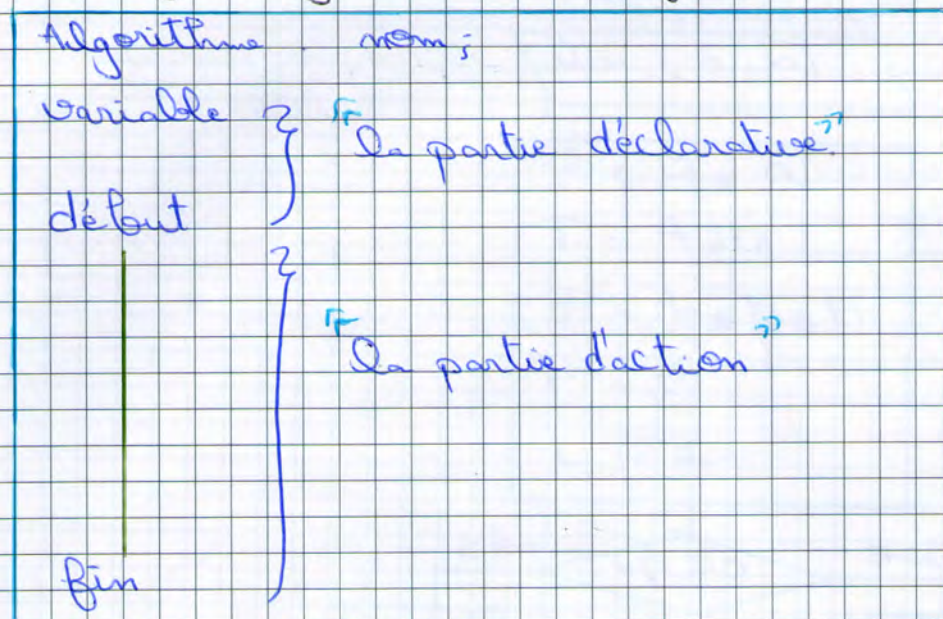 Algorithme nom ;
variable
"la partie déclarative"
début
"la partie d'action"
fin